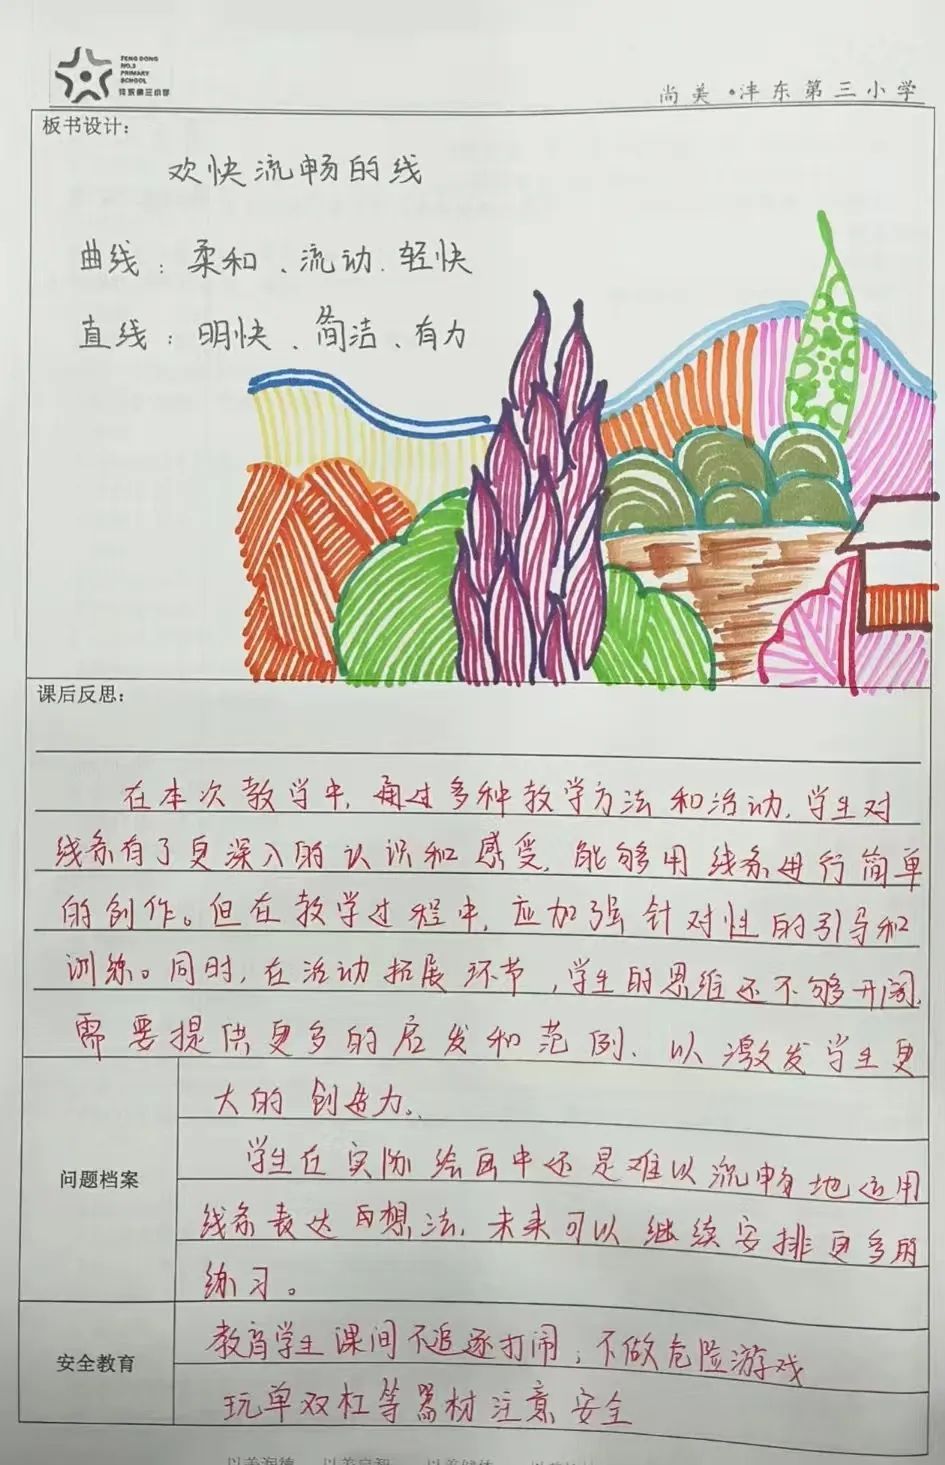 FENG DONG
NO.3
PRIMARY
SCHOOL
沣东第三小学
尚美·沣东第三小学
板书设计：
欢快流畅的线
曲线：柔和、流动、轻快
直线：明快、简洁、有力
课后反思：
在本次教学中，通过多种教学方法和活动，学生对
线条有了更深入的认识和感受，能够用线条进行简单
的创作。但在教学过程中，应加强针对性的引导和
训练。同时，在活动拓展环节，学生的思维还不够开阔，
需要提供更多的启发和范例、以激发学生更
大的创造力。
问题档案
学生在实际绘画中还是难以流畅地运用
线条表达想法，未来可以继续安排更多的
练习。
安全教育
教育学生课间不追逐打闹，不做危险游戏
玩单双杠等器材注意安全